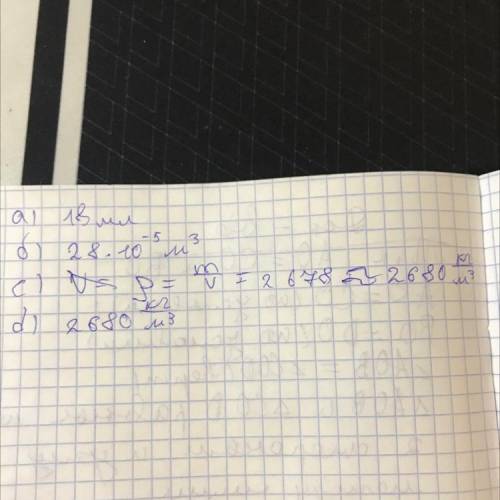 а) 18 мл
б) 28 · 10⁻⁵ м³
c) ρ = m/V = 2678 ≈ 2680 кг/м³
d) 2680 кг/м³